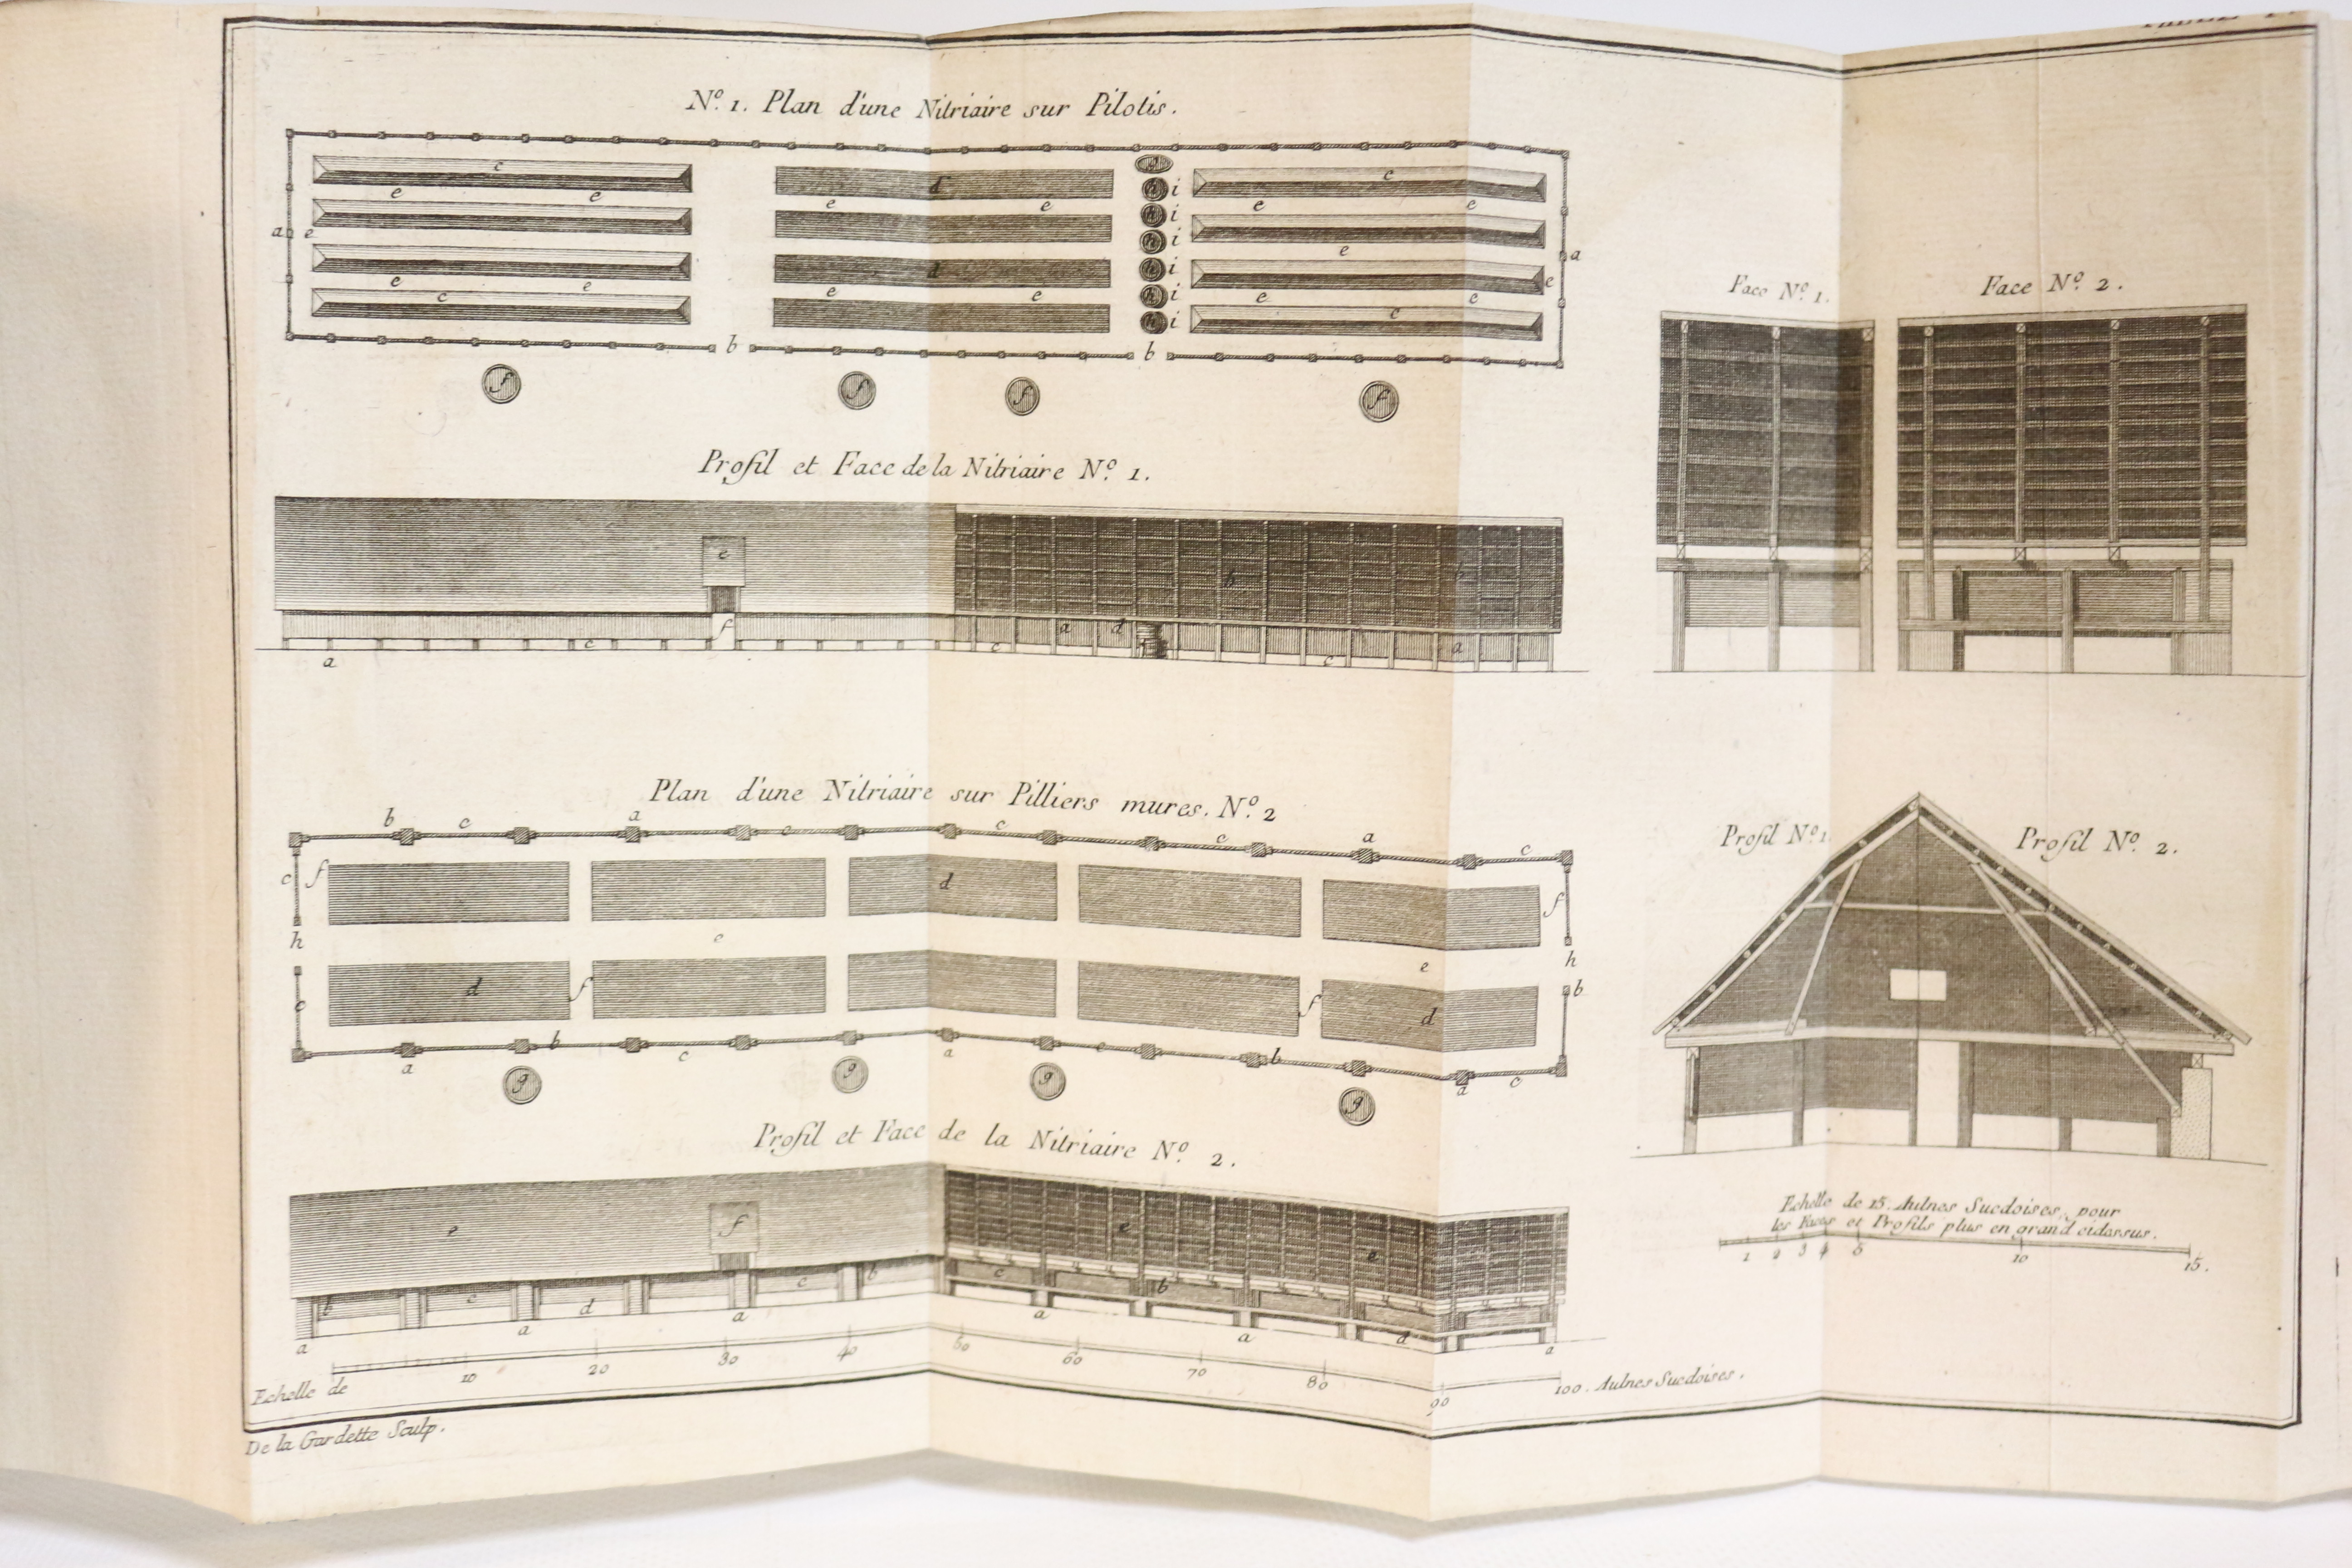 N.º 1. Plan d'une Nitriaire sur Pilotis.
c
e e
d
e e
i
i
i
i
i
i
h
h
h
h
h
h
c
e e
a e
e
a
e e
c
d
e e
e
e e
c
b b
f f f f
Profil et Face de la Nitriaire N.º 1.
c
b b
f
a c
c a d a c
Face N.º 1.
Face N.º 2.
Plan d'une Nitriaire sur Pilliers mures. N.º 2
b c a c c c a c
c f d f
h e e h
c d f f d b
a b c a c b a c
g g g g
Profil N.º 1.
Profil N.º 2.
Profil et Face de la Nitriaire N.º 2.
e f e e
b c d c b c b d
a a a a a a
Echelle de 10 20 30 40 50 60 70 80 90 100. Aulnes Suedoises.
Echelle de 15. Aulnes Suedoises, pour
les Faces et Profils plus en grand cidessus.
1 2 3 4 5 10 15.
De la Gardette Sculp.